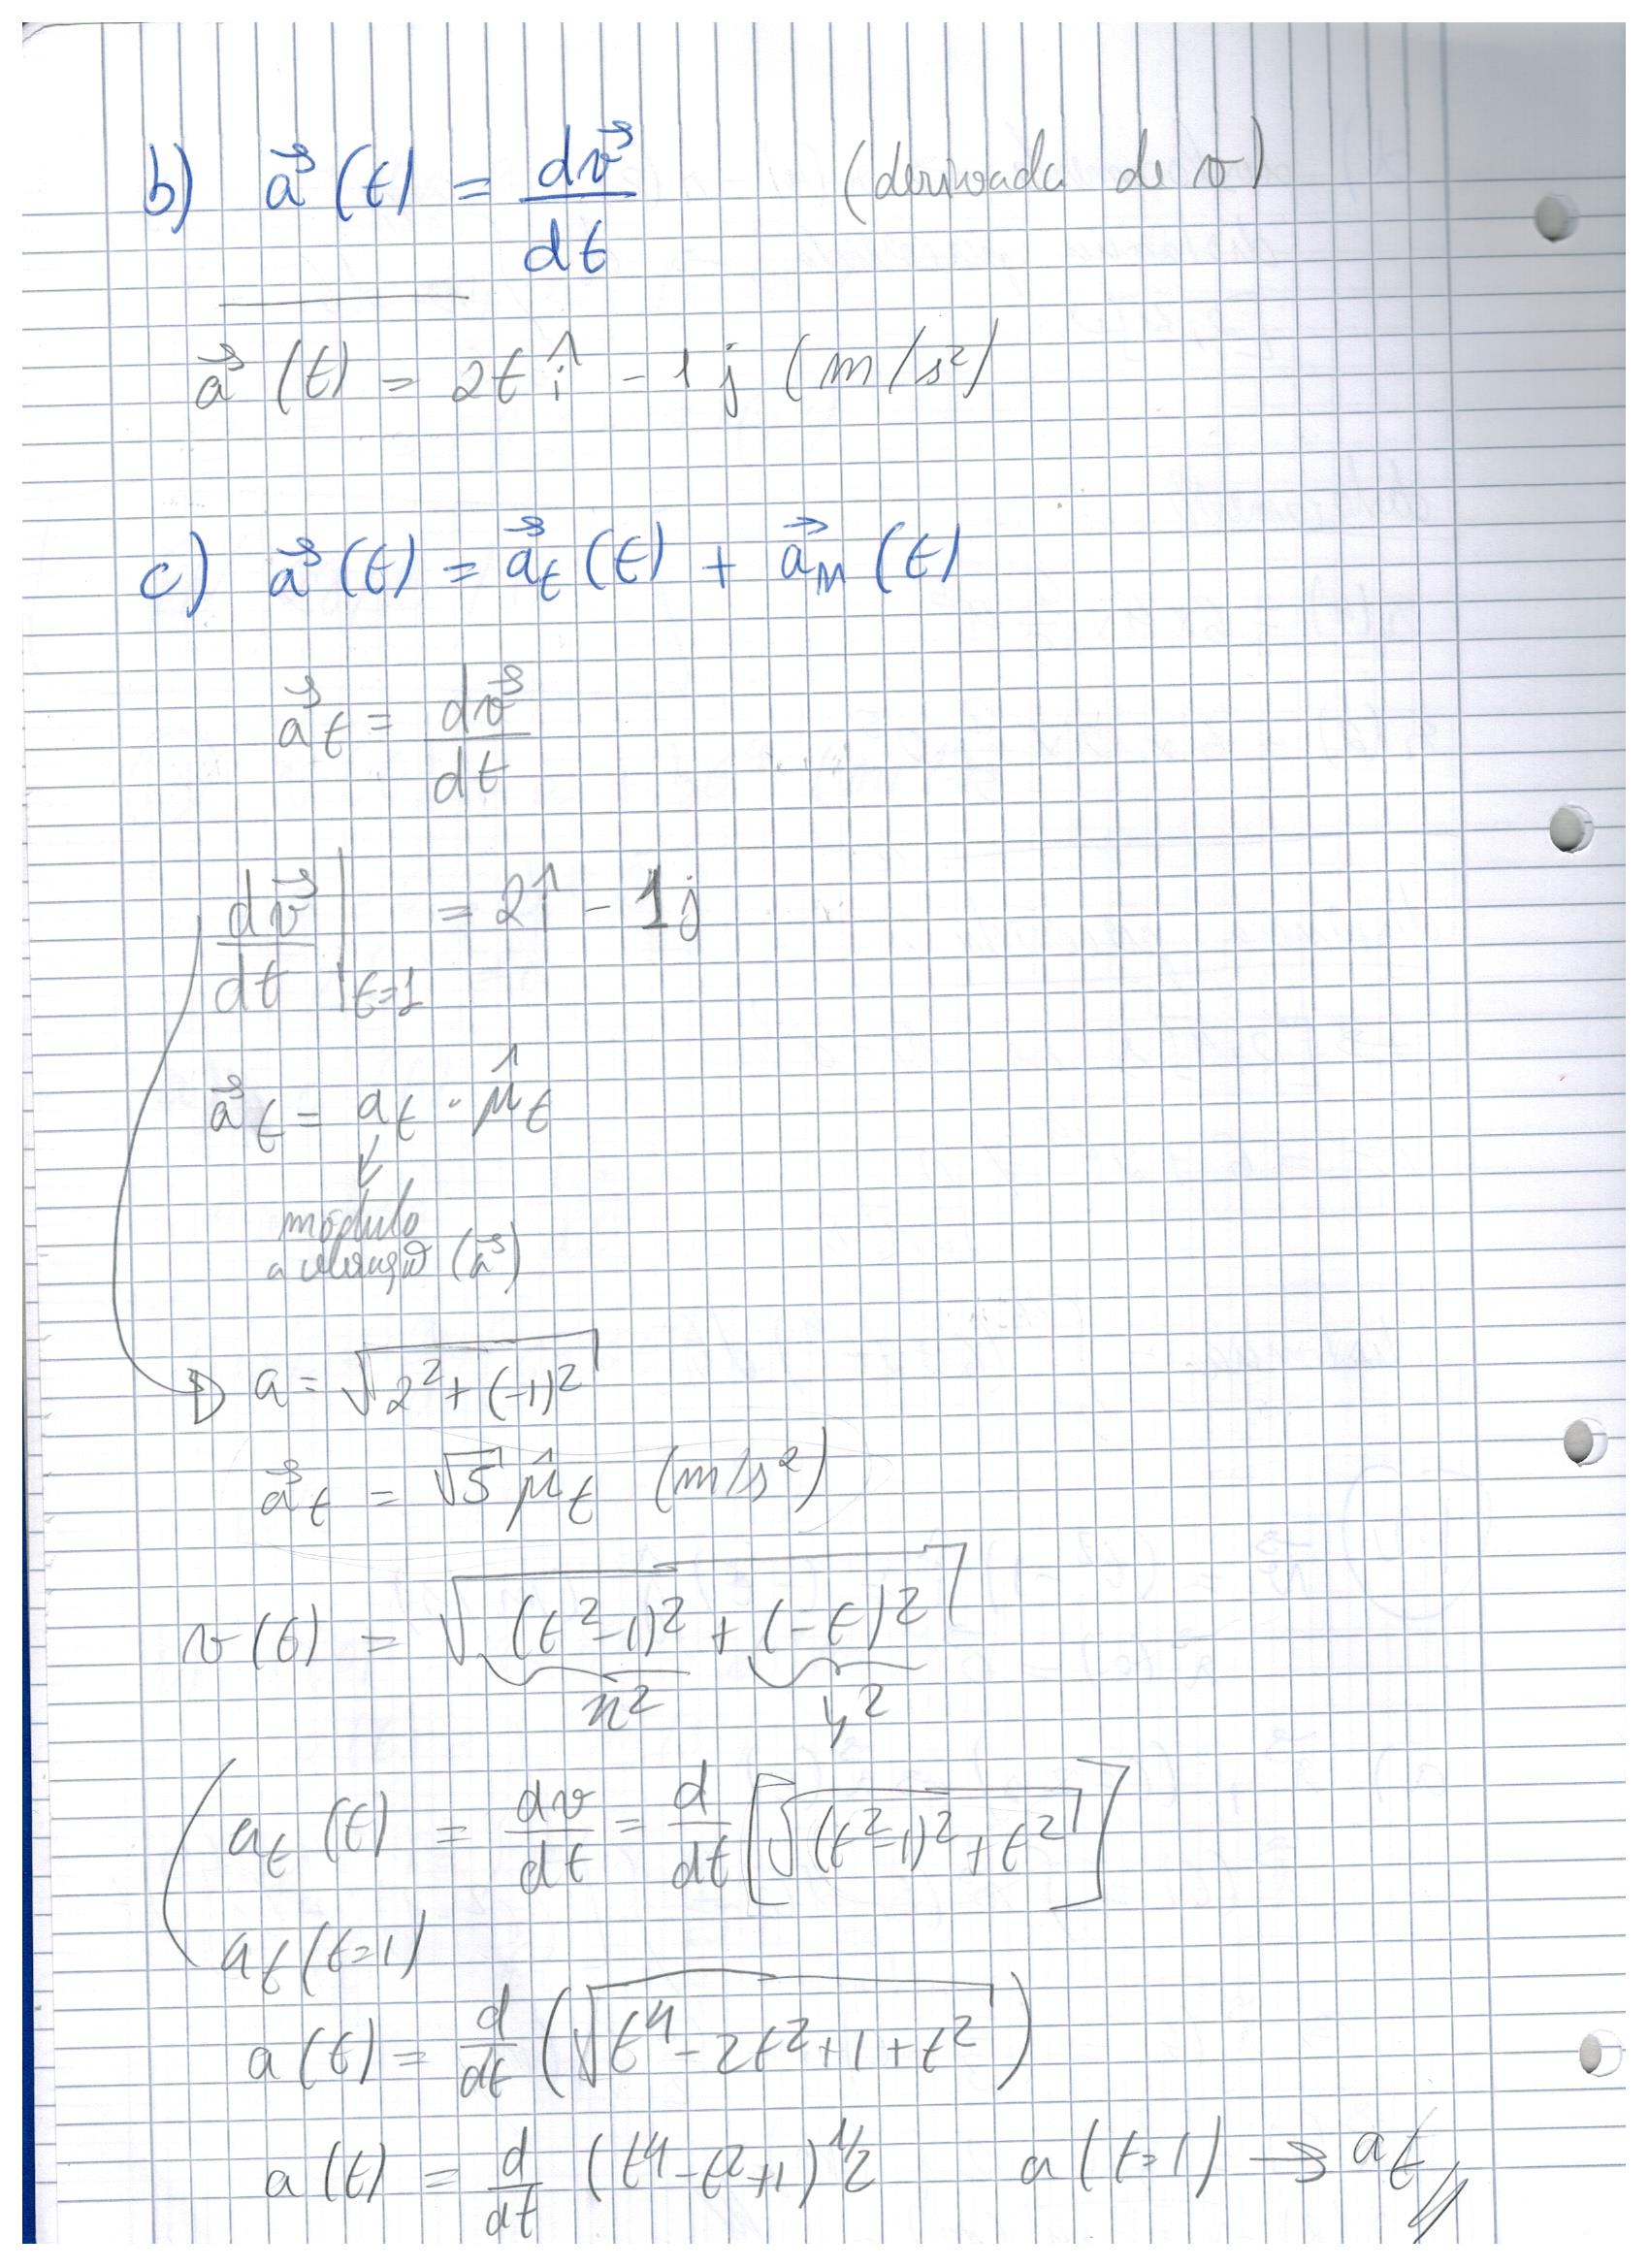 b) a⃗(t) = dv⃗/dt (derivada de v)
a⃗(t) = 2t î - 1j (m/s²)
c) a⃗(t) = a⃗t(t) + a⃗n(t)
a⃗t = dv⃗/dt
dv⃗/dt |t=1 = 2î - 1j
a⃗t = at · μ̂t
módulo
aceleração (a⃗)
a = √(2² + (-1)²)
a⃗t = √5 μ̂t (m/s²)
v(t) = √((t²-1)² + (-t)²)
x² y²
at(t) = dv/dt = d/dt [√((t²-1)² + t²)]
at(t=1)
a(t) = d/dt (√(t⁴ - 2t² + 1 + t²))
a(t) = d/dt (t⁴ - t² + 1)^1/2 a(t=1) → at //